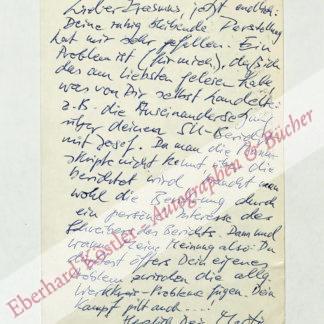 Lieber Erasmus, jetzt endlich:
Deine ruhig bleibende Darstellung
hat mir sehr gefallen. Ein
Problem ist (für mich), daß ich
das am liebsten gelesen habe
was von Dir selbst handelte
z.B. die Auseinandersetzung
über deinen SU-Bericht
mit Josef. Da man die
nicht kennt über die
berichtet wird, man
wohl die durch
ein Interesse der
Schreiber des Berichts. Dann und
wann meine Meinung also: Du
öfter Dein eigenes
Problem zwischen die allg.
Werkkreis-Probleme fügen. Dein
Kampf gilt auch ....
Herzlich Dein Martin
Eberhard Köstler - Autographen & Bücher